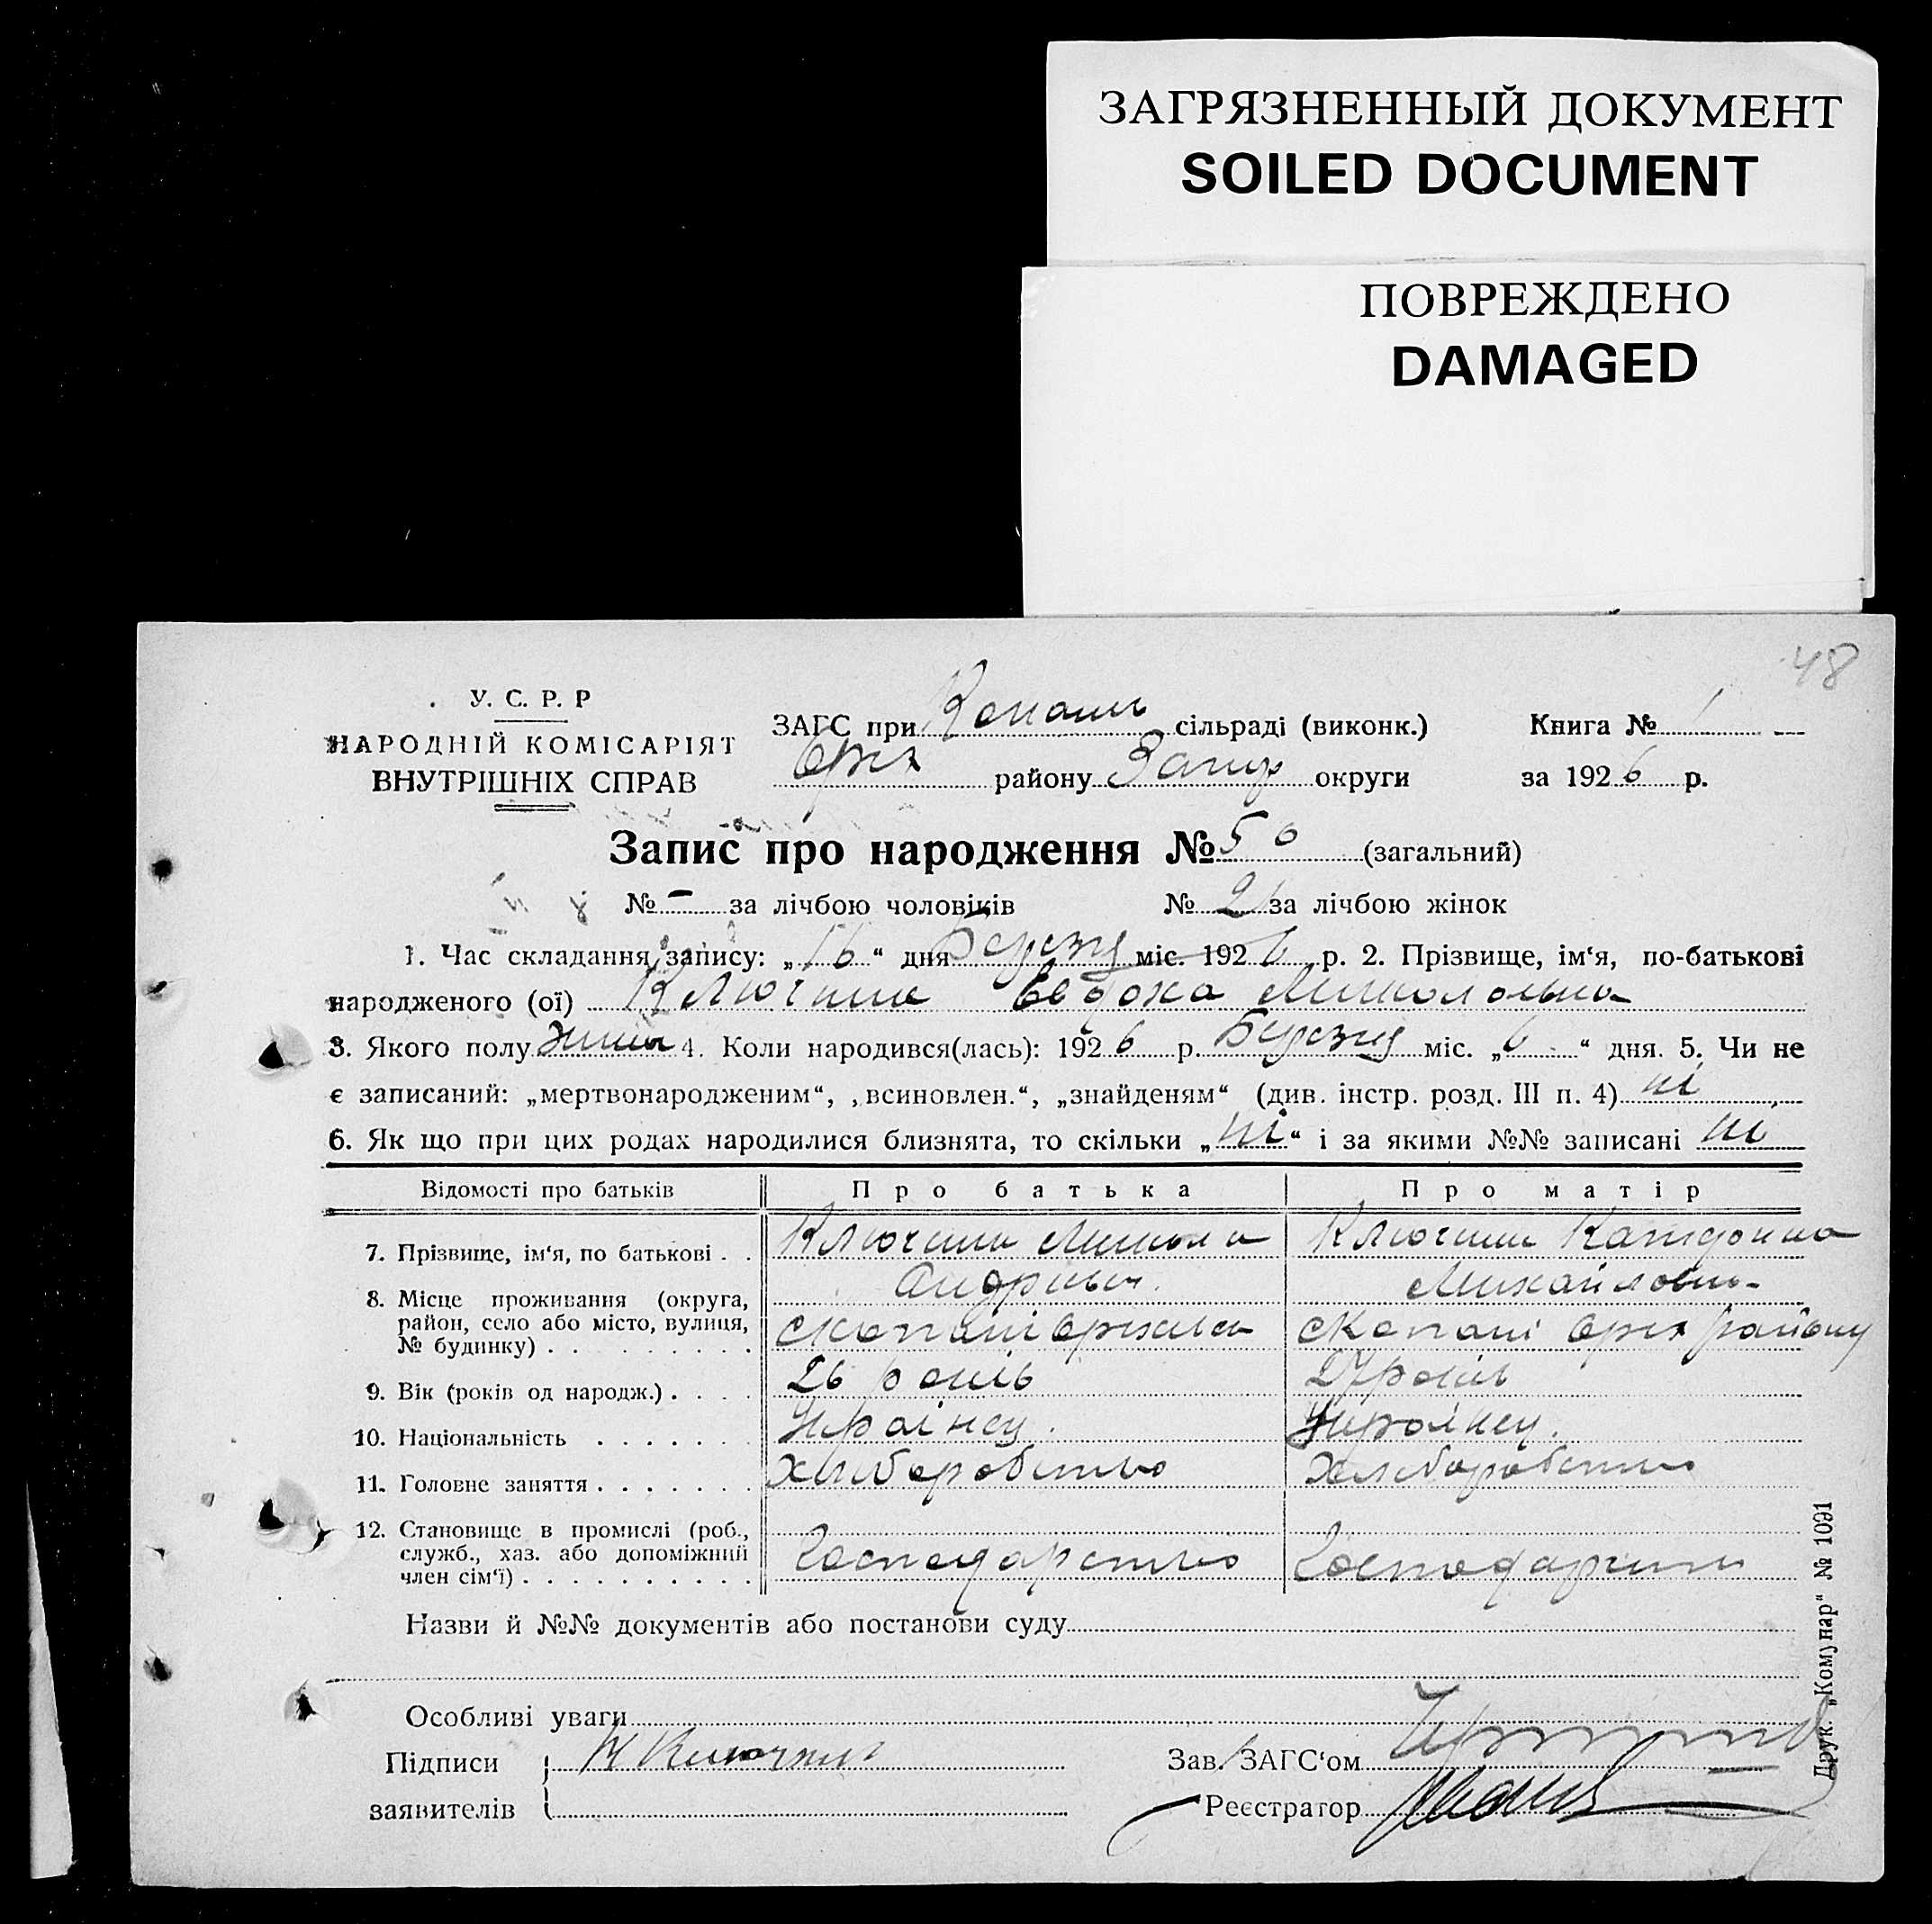 ЗАГРЯЗНЕННЫЙ ДОКУМЕНТ
SOILED DOCUMENT
ПОВРЕЖДЕНО
DAMAGED
48
У. С. Р. Р
НАРОДНІЙ КОМІСАРІЯТ
ВНУТРІШНІХ СПРАВ
ЗАГС при Копань сільраді (виконк.) Книга № 1
Оріх району Запор округи за 1926 р.
Запис про народження № 50 (загальний)
№ - за лічбою чоловіків № за лічбою жінок
1. Час складання запису: „16“ дня Березня міс. 1926 р. 2. Прізвище, ім‘я, по-батькові
народженого (ої) Ключник Евдоха Миколовна
3. Якого полу 4. Коли народився(лась): 1926 р. Березня міс. „6“ дня. 5. Чи не
є записаний: „мертвонародженим“, „всиновлен.“, „знайденям“ (див. інстр. розд. III п. 4) ні
6. Як що при цих родах народилися близнята, то скільки „ні“ і за якими №№ записані ні
Відомості про батьків Про батька Про матір
7. Прізвище, ім‘я, по батькові . . Ключник Микола Андрієвич. Ключник Михайловн-
8. Місце проживання (округа, район, село або місто, вулиця, № будинку) . . . . . . . . . с Копані с Копані Оріх району
9. Вік (років од народж.) . . . . 26 років 27 років
10. Національність . . . . . . . Українец. Українец.
11. Головне заняття . . . . . . . Хліборобство Хліборобство
12. Становище в промислі (роб., служб., хаз. або допоміжний член сім‘ї) . . . . . . . . . . Господарство
Назви й №№ документів або постанови суду
Особливі уваги
Підписи Ключник Зав. ЗАГС‘ом
заявителів Реєстратор
Друк. „Комунар“ № 1091